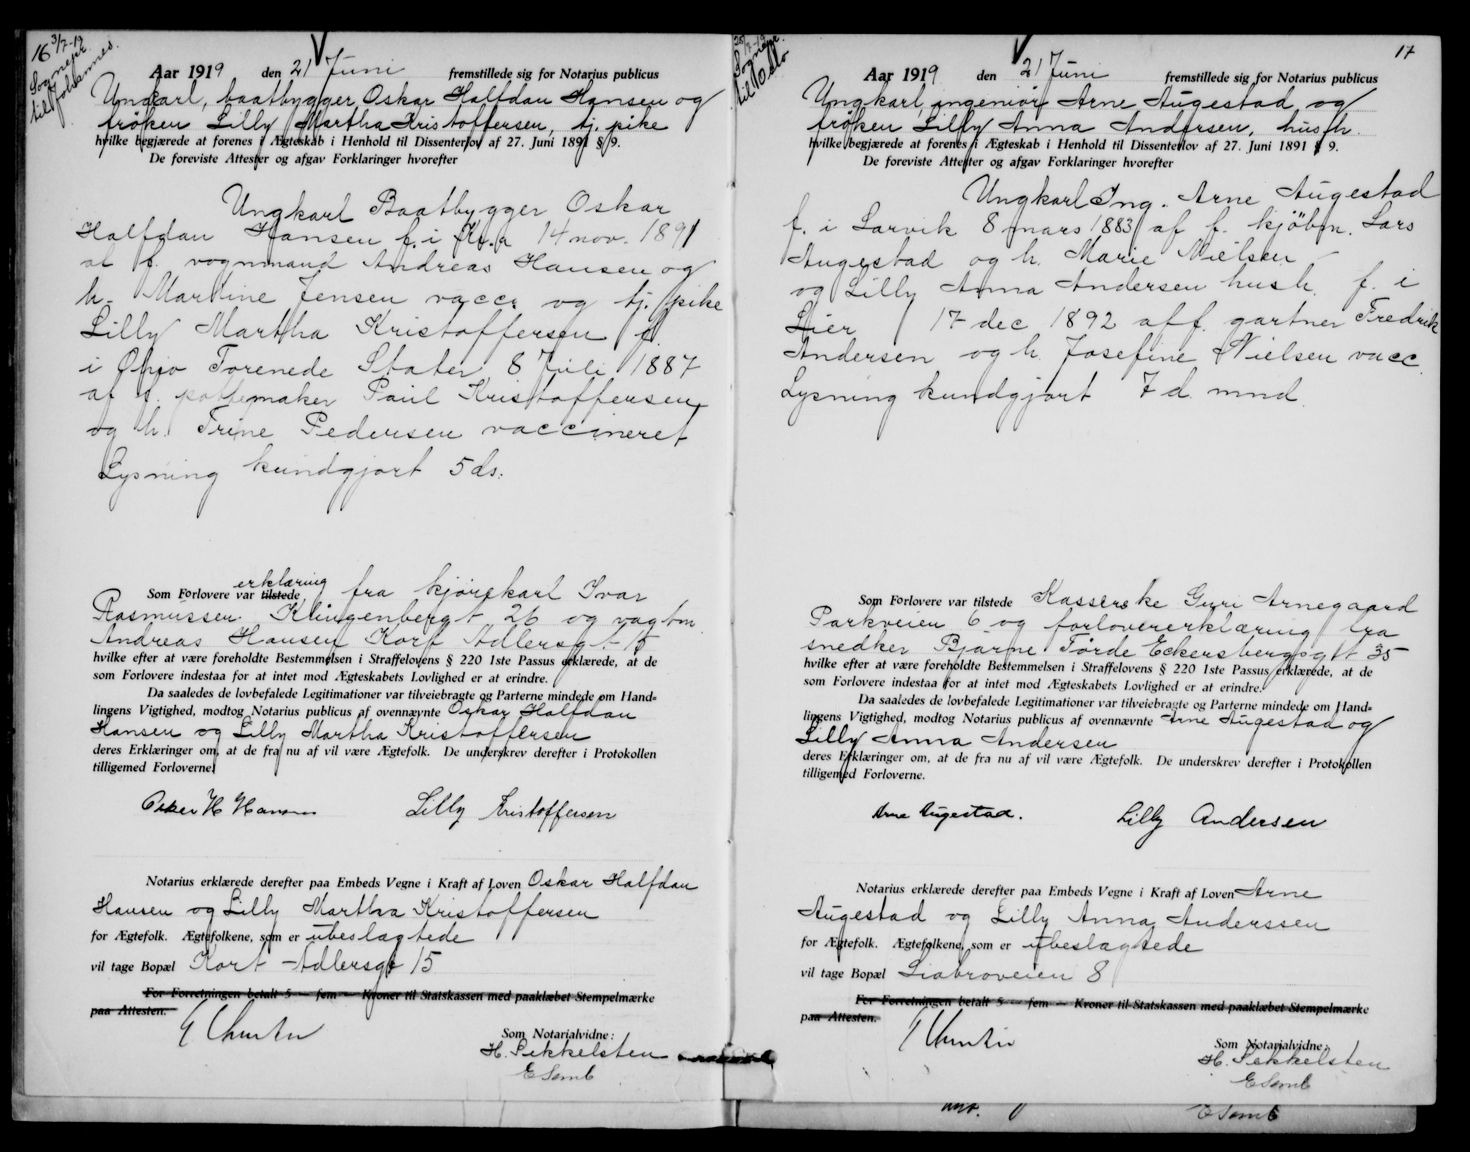 16 3/7-19
Sognepr.
til Johannes.
Aar 1919 den 21 Juni fremstillede sig for Notarius publicus
Ungkarl, baatbygger Oskar Halfdan Hansen og
frøken Lilly Martha Kristoffersen, tj. pike
hvilke begjærede at forenes i Ægteskab i Henhold til Dissenterlov af 27. Juni 1891 § 9.
De foreviste Attester og afgav Forklaringer hvorefter
Ungkarl Baatbygger Oskar
Halfdan Hansen f. i Kr.a 14 nov. 1891
af f. vognmand Andreas Hansen og
h. Martine Jensen vacc. og tj. pike
Lilly Martha Kristoffersen f.
i Ohio Forenede Stater 8 Juli 1887
af f. pottemaker Paul Kristoffersen
og h. Trine Pedersen vaccineret
Lysning kundgjort 5 ds.
Som Forlovere var tilstede erklæring fra kjørekarl Ivar
Rasmussen Klingenbergt 26 og vogtm
Andreas Hansen Kort Adlersgt 15
hvilke efter at være foreholdte Bestemmelsen i Straffelovens § 220 1ste Passus erklærede, at de
som Forlovere indestaa for at intet mod Ægteskabets Lovlighed er at erindre.
Da saaledes de lovbefalede Legitimationer var tilveiebragte og Parterne mindede om Hand-
lingens Vigtighed, modtog Notarius publicus af ovennævnte Oskar Halfdan
Hansen og Lilly Martha Kristoffersen
deres Erklæringer om, at de fra nu af vil være Ægtefolk. De underskrev derefter i Protokollen
tilligemed Forloverne.
Oskar H Hansen Lilly Kristoffersen
Notarius erklærede derefter paa Embeds Vegne i Kraft af Loven Oskar Halfdan
Hansen og Lilly Martha Kristoffersen
for Ægtefolk. Ægtefolkene, som er ubeslægtede
vil tage Bopæl Kort Adlersgt 15
For Forretningen betalt 5 — fem — Kroner til Statskassen med paaklæbet Stempelmærke
paa Attesten.
Som Notarialvidne:
H. Sekkelsten
E Samb
17
25/7-19
Sognepr.
til Oslo
Aar 1919 den 21 Juni fremstillede sig for Notarius publicus
Ungkarl, ingeniør Arne Augestad og
frøken Lilly Anna Andersen, hush.
hvilke begjærede at forenes i Ægteskab i Henhold til Dissenterlov af 27. Juni 1891 § 9.
De foreviste Attester og afgav Forklaringer hvorefter
Ungkarl Ing. Arne Augestad
f. i Larvik 8 mars 1883 af f. kjöbm. Lars
Augestad og h. Marie Nielsen
og Lilly Anna Andersen hush. f. i
Lier 17 dec 1892 af f. gartner Fredrik
Andersen og h. Josefine Nielsen vacc.
Lysning kundgjort 7 d. mnd.
Som Forlovere var tilstede Kasserske Guri Arnegaard
Parkveien 6 og forlovererklæring fra
snedker Bjarne Förde Eckersbergsgt 35
hvilke efter at være foreholdte Bestemmelsen i Straffelovens § 220 1ste Passus erklærede, at de
som Forlovere indestaa for at intet mod Ægteskabets Lovlighed er at erindre.
Da saaledes de lovbefalede Legitimationer var tilveiebragte og Parterne mindede om Hand-
lingens Vigtighed, modtog Notarius publicus af ovennævnte Arne Augestad og
Lilly Anna Andersen
deres Erklæringer om, at de fra nu af vil være Ægtefolk. De underskrev derefter i Protokollen
tilligemed Forloverne.
Arne Augestad. Lilly Andersen
Notarius erklærede derefter paa Embeds Vegne i Kraft af Loven Arne
Augestad og Lilly Anna Anderssen
for Ægtefolk. Ægtefolkene, som er ubeslægtede
vil tage Bopæl Liabroveien 8
For Forretningen betalt 5 — fem — Kroner til Statskassen med paaklæbet Stempelmærke
paa Attesten.
Som Notarialvidne:
H. Sekkelsten
E Samb
E Samb